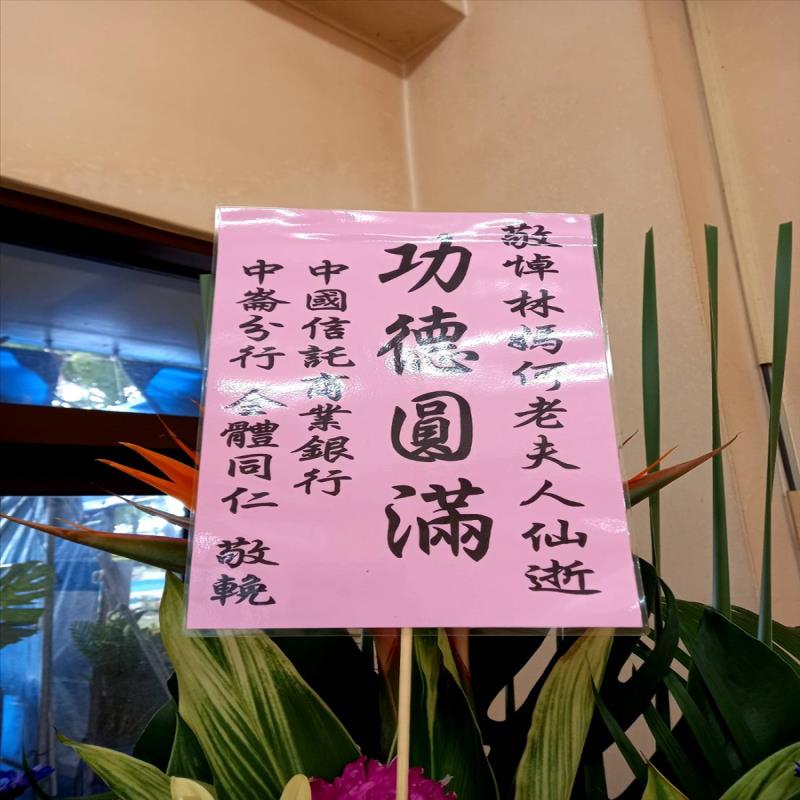 敬悼林媽何老夫人仙逝
功德圓滿
中國信託商業銀行
中崙分行 全體同仁 敬輓